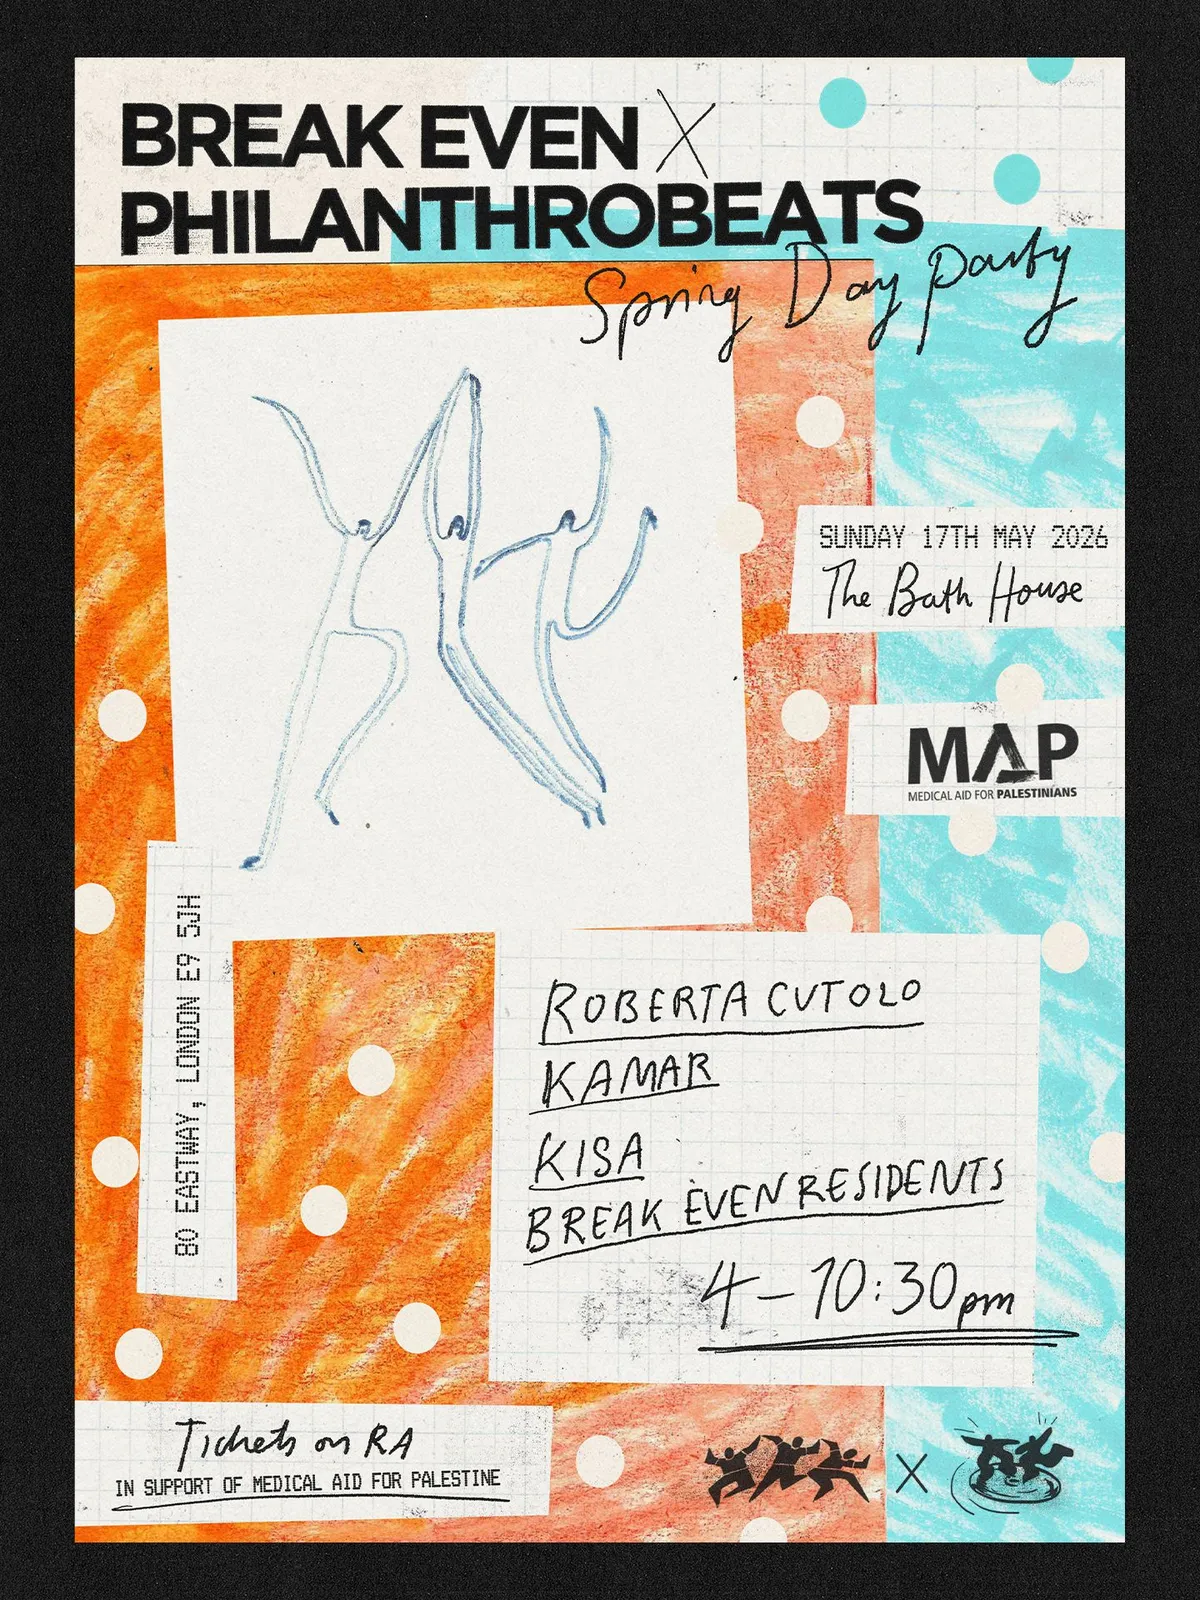 BREAK EVEN X
PHILANTHROBEATS
Spring Day Party
SUNDAY 17TH MAY 2026
The Bath House
MAP
MEDICAL AID FOR PALESTINIANS
80 EASTWAY, LONDON E9 5JH
ROBERTA CUTOLO
KAMAR
KISA
BREAK EVEN RESIDENTS
4 – 10:30pm
Tickets on RA
IN SUPPORT OF MEDICAL AID FOR PALESTINE
X